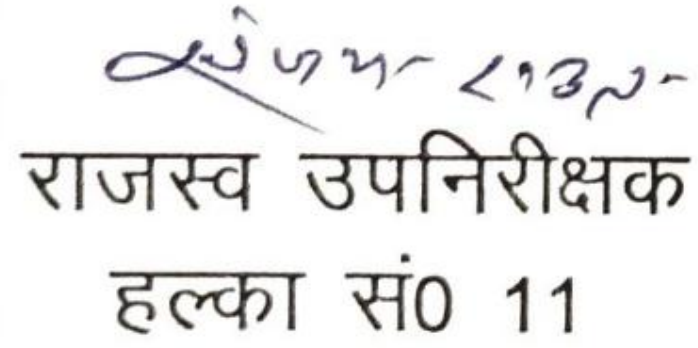 राजस्व उपनिरीक्षक
हल्का सं0 11